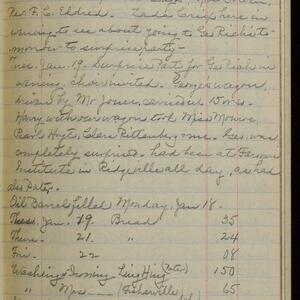 Rev. F. C. Eldred. Lada Craig here in
evening to see about going to Geo Rich's to-
morrow to surprise party -
Tues. Jan. 19. Surprise Party for Geo Rich in
evening, choir invited. George's wagon,
driven by Mr Jones, carried us
Harry with our wagon took Miss Monroe,
Pearl Hoyt, Clara Rittenberg, me. Geo. was
completely surprised. had been at Farmers
Institute in Ridgeville all day, as had
also Pater.
Oil Barrel filled Monday, Jan 18.
Tues. Jan. 19. Bread 35
Thurs. 21. " 24
Fri. 22 08
Washing & Ironing - Ling Hing (Pater) 1 50
" Mrs. (Fisherville) 65